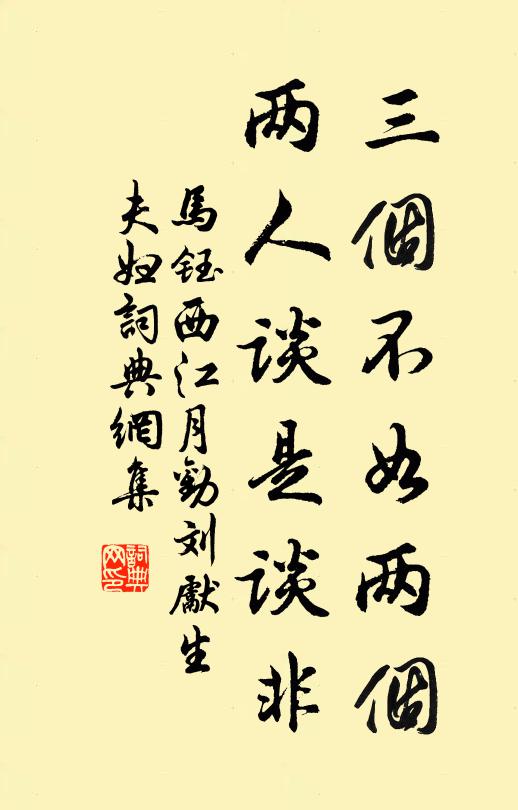 三個不如兩個
兩人談是談非
馬鈺西江月勸刘獻生
夫婦詞典網集
詞典
网印